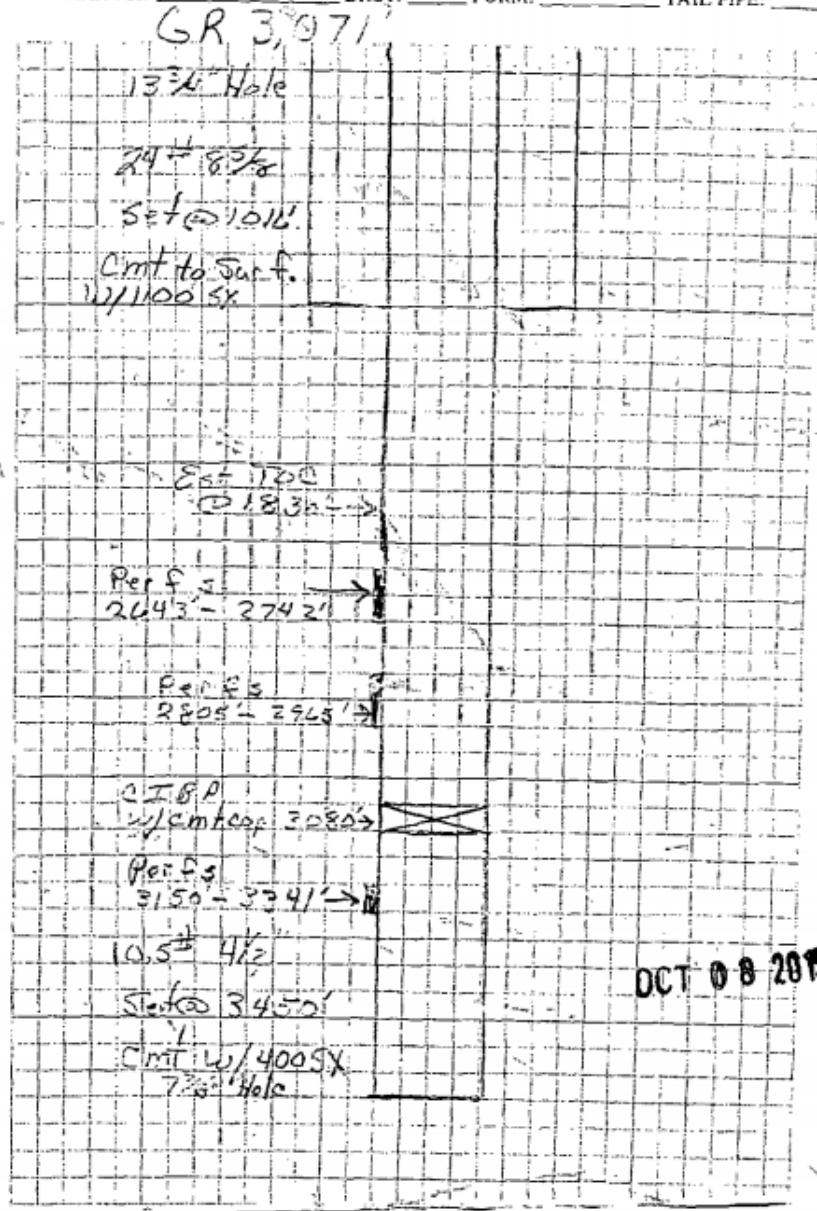 FORM: TAIL PIPE:
GR 3,071'
13 3/4" Hole
24# 8 5/8
Set @ 1016'
Cmt to Surf.
W/1100 SX
Est TOC
@ 1830' →
Perfs
2643' - 2742'
Perfs
2805' - 2965' →
CIBP
w/cmt cap 3080' →
Perfs
3150' - 3341' →
10.5# 4 1/2"
Set @ 3450'
Cmt w/400SX
7 7/8" Hole
OCT 08 201